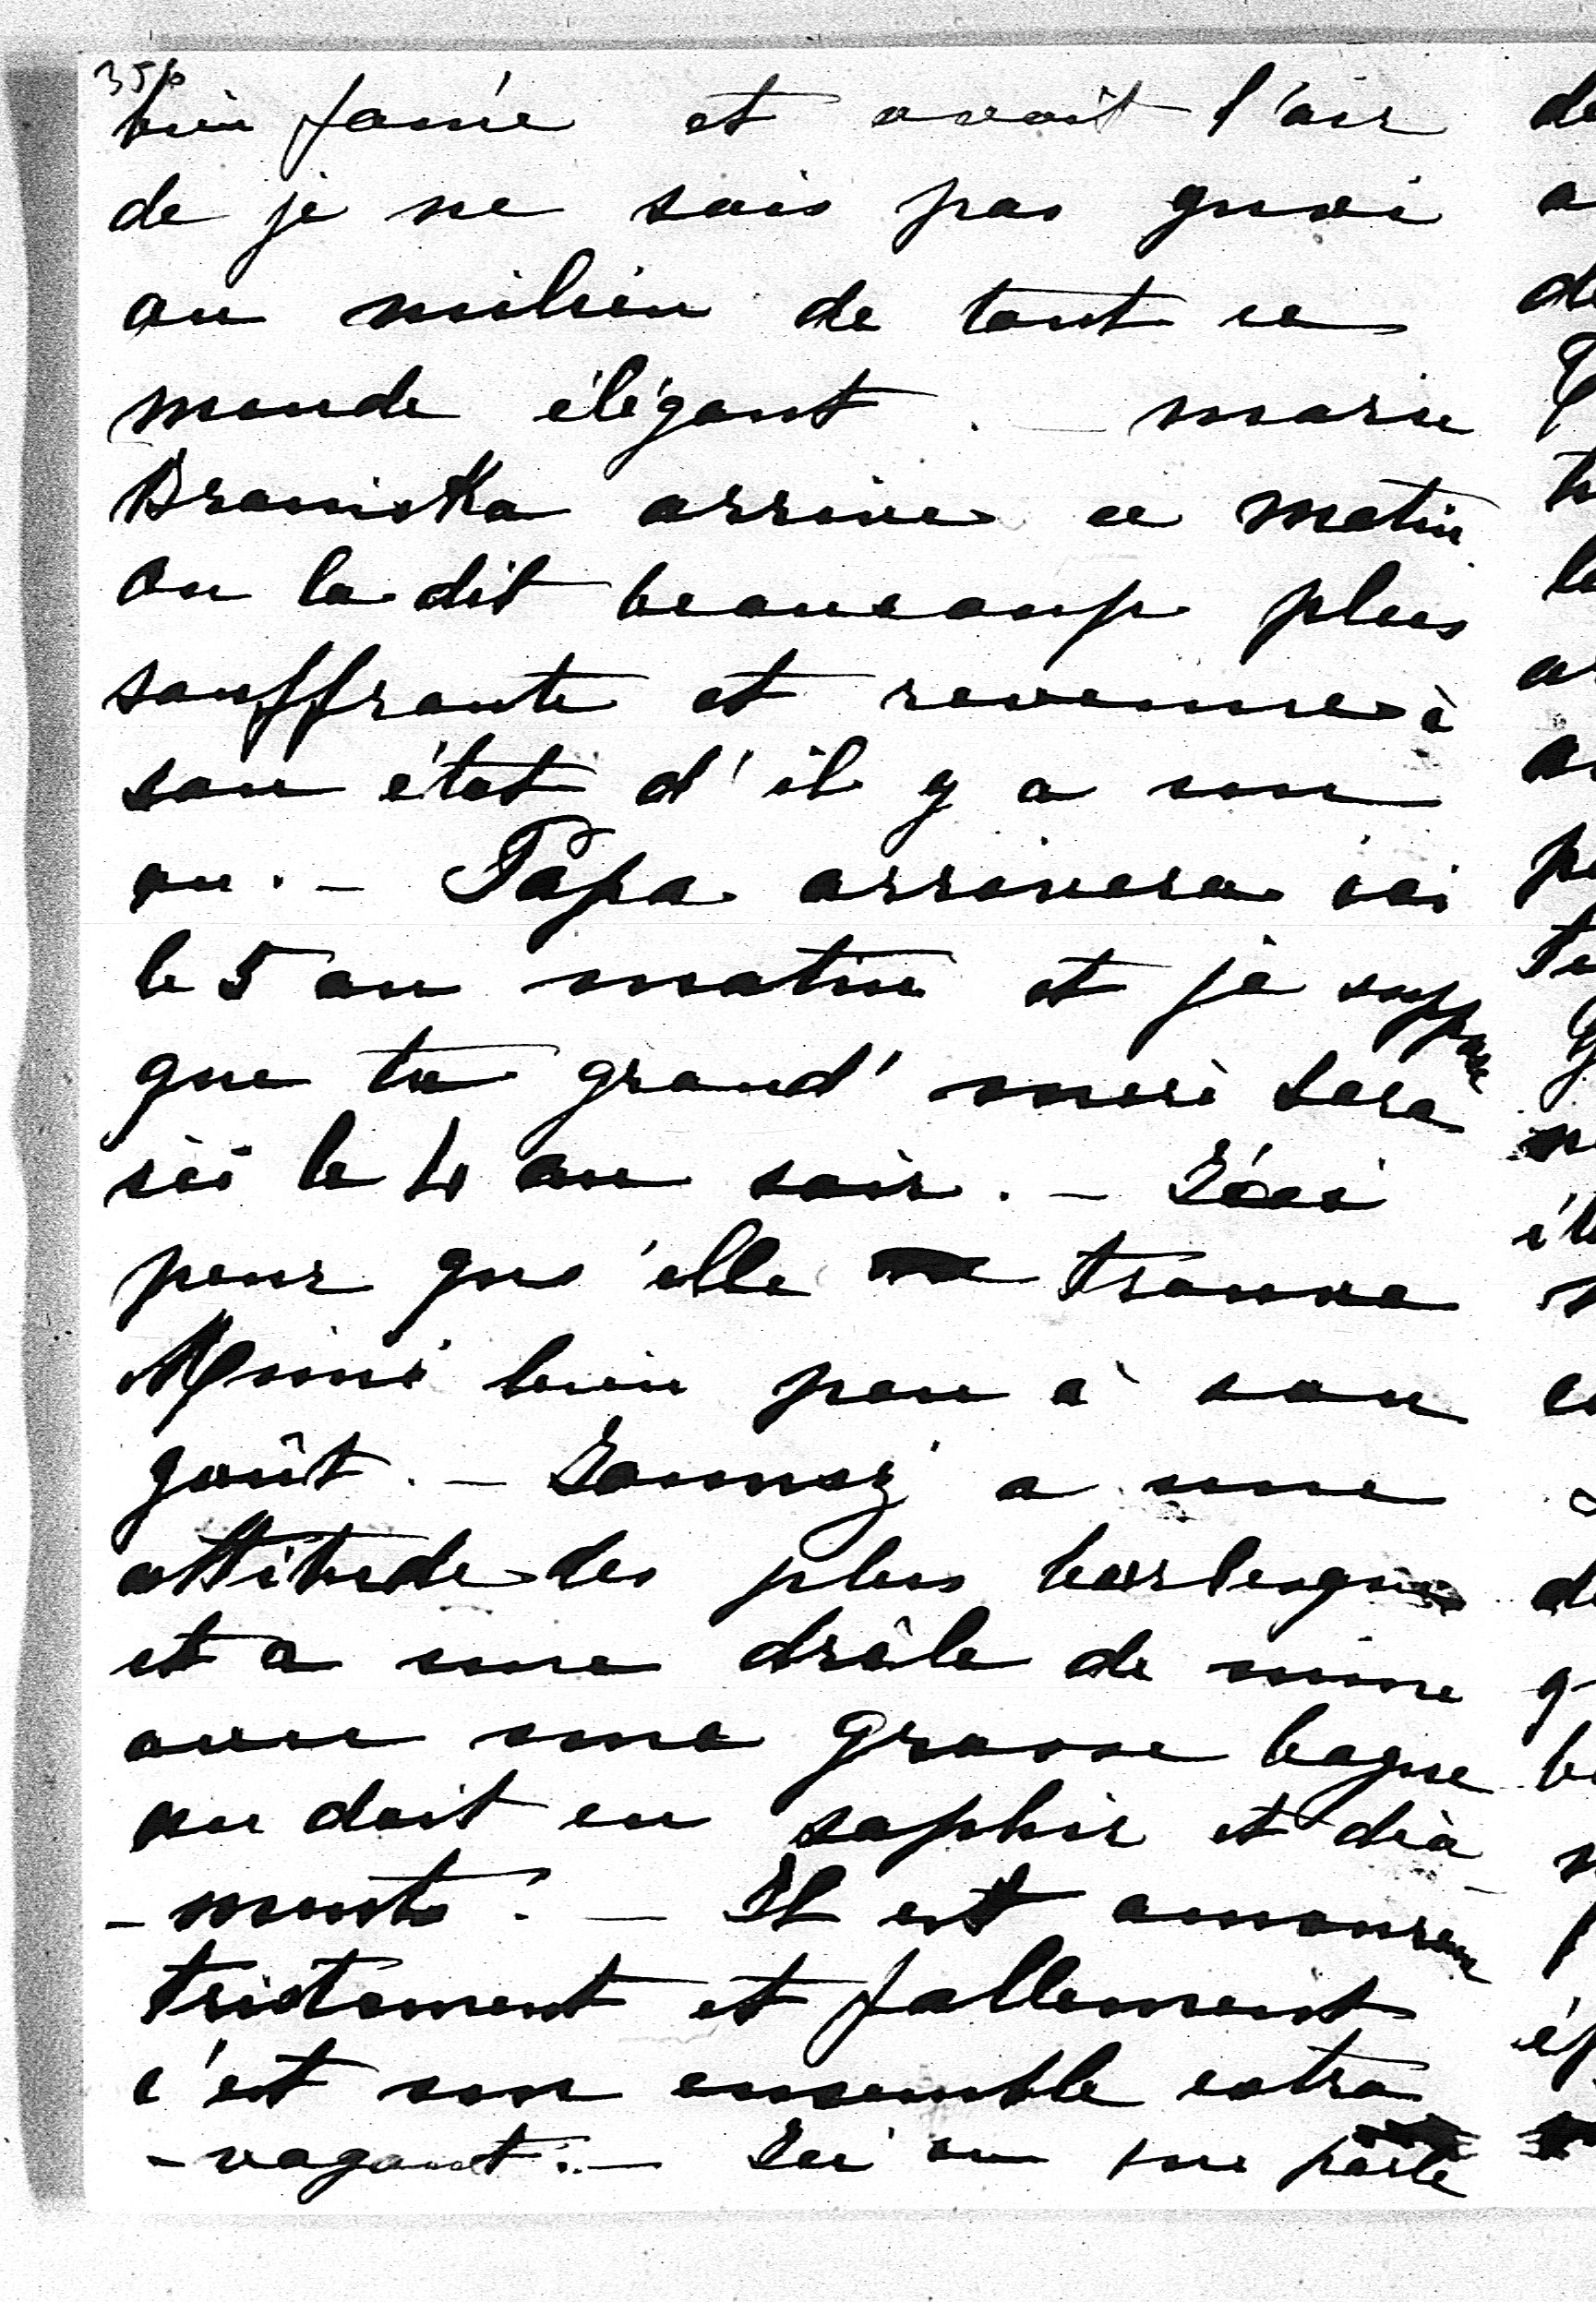 356
bien fanée et avait l'air
de je ne sais pas quoi
au milieu de tout ce
monde élégant. – Marie
Braniska arrive ce matin
on la dit beaucoup plus
souffrante et revenue à
son état d'il y a un
an. – Papa arrivera ici
le 5 au matin et je suppose
que ta grand' mère sera
ici le 4 au soir. – J'ai
peur qu'elle trouve
Mimi bien peu à son
goût. – a une
attitude des plus burlesques
et a une drôle de mine
avec une grosse bague
au doit en saphir et dia
- mants. – Il est amoureux
tristement et follement
c'est un ensemble extra
- vagant. – Ici on ne parle